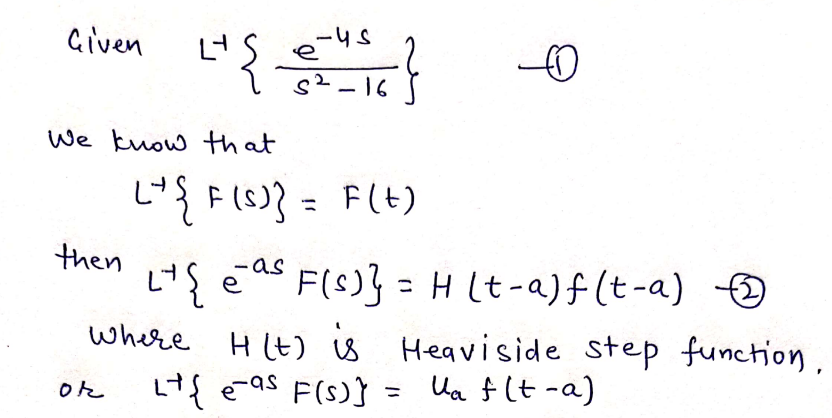 Given L⁻¹{ e^-4s / s² - 16 } —①
We know that
L⁻¹{ F(s)} = F(t)
then L⁻¹{ e^-as F(s)} = H(t-a)f(t-a) —②
Where H(t) is Heaviside step function.
or L⁻¹{ e^-as F(s)} = Ua f(t-a)